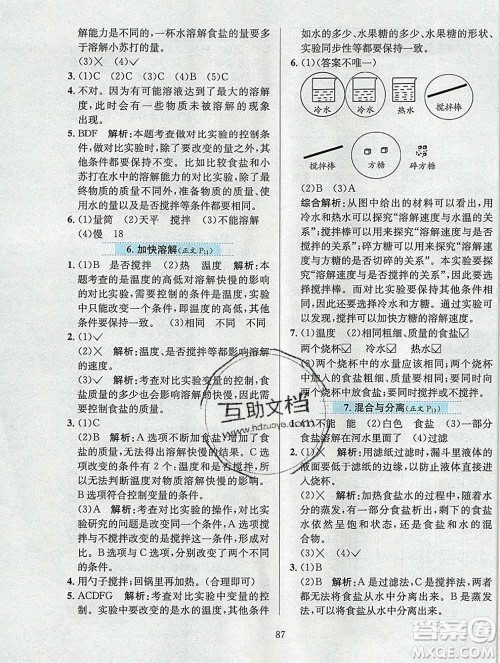 解能力是不同的，一杯水溶解食盐的量要多于溶解小苏打的量。
(3)× (4)✓
3. (1)C (2)B (3)C
4. 不对。因为有可能溶液达到了最大的溶解度，此时就会有一些物质未被溶解的现象出现。
5. BDF 解析：本题考查做对比实验的控制条件，做对比实验时，除了要改变的量，其他条件都要一致。比如说食盐和小苏打在水中的溶解实验时，除了最终溶解的物质的质量不一样之外，准备溶解的物质的质量、水的质量、温度、是否搅拌等其他条件都要一致，所以选择BDF。
6. (1)量筒 (2)天平 搅拌 (3)不能溶解
(4)慢 18
6. 加快溶解(正文P11)
1. (1)B 是否搅拌 (2)热 温度 解析：本题考查的是温度的高低对溶解快慢的影响的对比实验，需要控制的条件是温度的高低，其他的条件需要一样。
(3)搅拌 相同 不同 不同
2. (1)✓
(2)× 解析：温度、是否搅拌等都会影响溶解的速度。
(3)× 解析：考查对比实验变量的控制，对比实验只能改变一个条件，其他的条件不变。
3. (1)C
(2)B 解析：A选项不断加食盐会增加食盐的质量，不断搅拌，这改变了两个条件，所以无法判断温度对物质溶解快慢的影响；B选项符合控制变量的方法。
(3)A 解析：考查对比实验的操作，对比实验研究的问题只能是改变的一个条件，其他条件不能改变。B选项改变了两个条件，C选项也改变了两个条件。
4. 用勺子搅拌；回锅里再加热。(合理即可)
5. ACDFG 解析：考查对比实验中变量的控制。实验中要改变的是水的温度，其他条件
如水的多少、水果糖的多少、水果糖的形状、实验同步性等都要保持一致。
6. (1)(答案不唯一)
冷水 冷水 热水 搅拌棒
搅拌棒 方糖 碎方糖
(2)B (3)A
综合解析：从图中给出的材料可以看出，使用冷水和热水可以探究“溶解速度与水温的关系”；用搅拌棒可以探究“溶解速度与是否搅拌的关系”；碎方糖可以探究“溶解速度与方糖是否切碎的关系”。要保证单一变量，其他条件都要保持一致。实验所得的结论与实验所探究的问题要保持一致。
7. (1)温度 (2)相同粗细、质量的食盐☑
两个烧杯☑ 冷水☑ 热水☑
解析：本题考查的是温度对溶解快慢的影响，所以要改变的是水的温度，两个烧杯放入的食盐粗细、质量要相同，水的质量要相同，两个烧杯要相同。
7. 混合与分离(正文P13)
1. (1)不能 能 (2)白色 食盐 (3)一部分食盐溶解在河水里面了 (4)过滤
2. (1)× 解析：用玻璃过滤时，漏斗里液体的液面要低于滤纸的边缘，这样可以防止液体从边缘直接流下，影响过滤效果。
(2)× 解析：加热食盐水的过程，随着水分的蒸发，有可能会有水和食盐的混合物迸溅出来，所以蒸发出去的还有食盐和水的混合物。
(3)✓
3. (1)B (2)A
(3)B 解析：A是过滤法，C是搅拌方法，不可以将食盐从水中分离出来。B是蒸发法，可以将食盐从水中分离出来。
87
互助文档
www.hdzuoye.com
答案圈
MXQE.COM